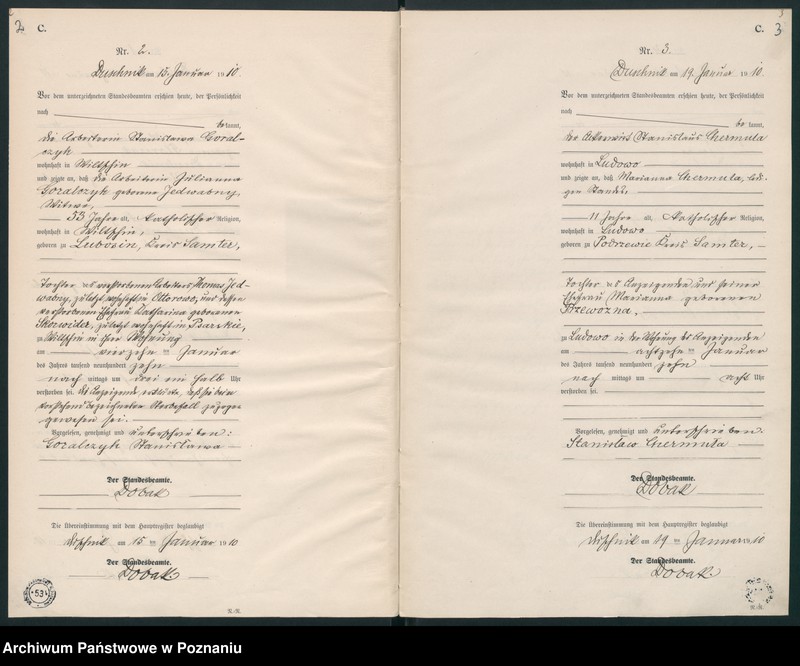 2
C.
Nr. 2.
Duschnik am 15. Januar 1910.
Vor dem unterzeichneten Standesbeamten erschien heute, der Persönlichkeit
nach
bekannt,
die Arbeiterin Stanislawa Goral-
czyk
wohnhaft in Wilkschin
und zeigte an, daß die Arbeiterin Julianna
Goralczyk geborene Jedwabny,
Witwe,
53 Jahre alt, katholischer Religion,
wohnhaft in Wilkschin,
geboren zu Lubosin, Kreis Samter,
Tochter des verstorbenen Arbeiters Thomas Jed-
wabny, zuletzt wohnhaft in Ottorowo, und dessen
verstorbenen Ehefrau Katharina geborenen
zuletzt wohnhaft in Psarskie,
zu Wilkschin in ihrer Wohnung
am vierzehn ten Januar
des Jahres tausend neunhundert zehn
nach mittags um drei ein halb Uhr
verstorben sei. Die Anzeigende erklärte, daß sie bei
vorstehend bezeichneten Sterbefall zugegen
gewesen sei.
Vorgelesen, genehmigt und unterschrieben:
Goralczyk Stanislawa
Der Standesbeamte.
Dobak
Die Übereinstimmung mit dem Hauptregister beglaubigt
Duschnik am 15 ten Januar 1910
Der Standesbeamte.
Dobak
R.-R.
C.
3
Nr. 3.
Duschnik am 19. Januar 1910.
Vor dem unterzeichneten Standesbeamten erschien heute, der Persönlichkeit
nach
bekannt,
der Ackerwirt Stanislaus Chermula
wohnhaft in Ludowo
und zeigte an, daß Marianna Chermula, ledi-
gen Standes,
11 Jahre alt, katholischer Religion,
wohnhaft in Ludowo
geboren zu Podrzewie Kreis Samter,
Tochter des Anzeigenden und seiner
Ehefrau Marianna geborenen
zu Ludowo in der Wohnung des Anzeigenden
am achtzehn ten Januar
des Jahres tausend neunhundert zehn
nach mittags um acht Uhr
verstorben sei.
Vorgelesen, genehmigt und unterschrieben.
Stanislaw Chermuła
Der Standesbeamte.
Dobak
Die Übereinstimmung mit dem Hauptregister beglaubigt
Duschnik am 19 ten Januar 1910
Der Standesbeamte.
Dobak.
R.-R.
Archiwum Państwowe w Poznaniu